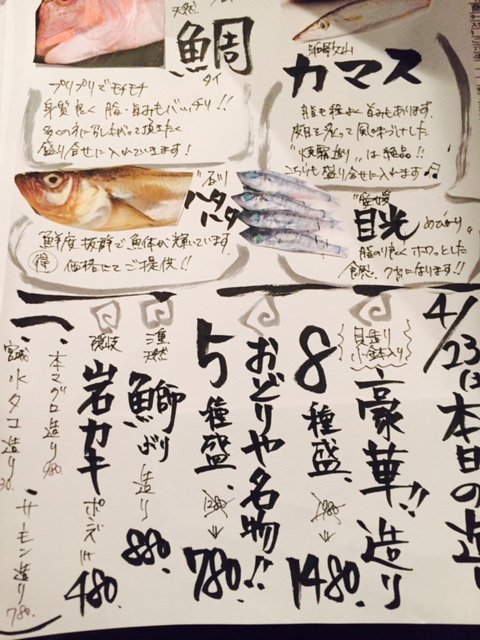 天然
鯛
タイ
プリプリでモチモチ
身質良く脂・旨みもバッチリ!!
多くの方に召し上がって頂きたく
盛り合せに入れています!
和歌山
カマス
脂も程よく旨みもあります。
皮目を炙って風味づけした
"焼霜造り"は絶品!!
こちらも盛り合せに入れます♫
石川
ハタハタ
鮮度抜群で魚体が輝いています。
得 価格にてご提供!!
愛媛
目光 めひかり。
脂のり良くホワッとした
食感。クセになります!!
4/23 本日の造
貝造り
小鉢入り
豪華!!造り
8種盛 1980→1480.
おどりや名物!!
5種盛 1280→780.
天然
鰤 ぶり 造り 880.
隠岐
岩カキ ポン酢 480.
一、本マグロ造り 980.
宮城 水タコ造り
一、サーモン造り 780.